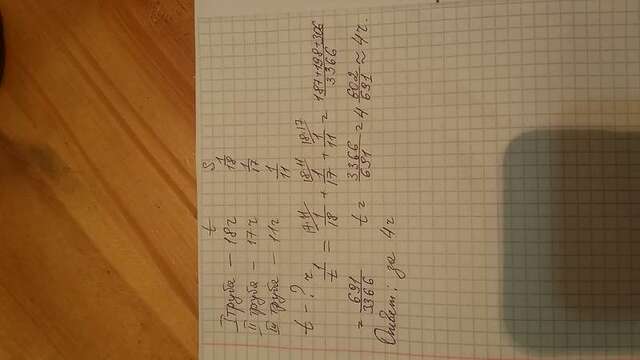 t S
I труба – 18ч 1/18
II труба – 17ч 1/17
III труба – 11ч 1/11
t – ? ч
17·11 18·11 18·17
1/t = 1/18 + 1/17 + 1/11 = 187+198+306/3366
= 691/3366 t = 3366/691 = 4 602/691 ≈ 4ч.
Ответ: за 4ч